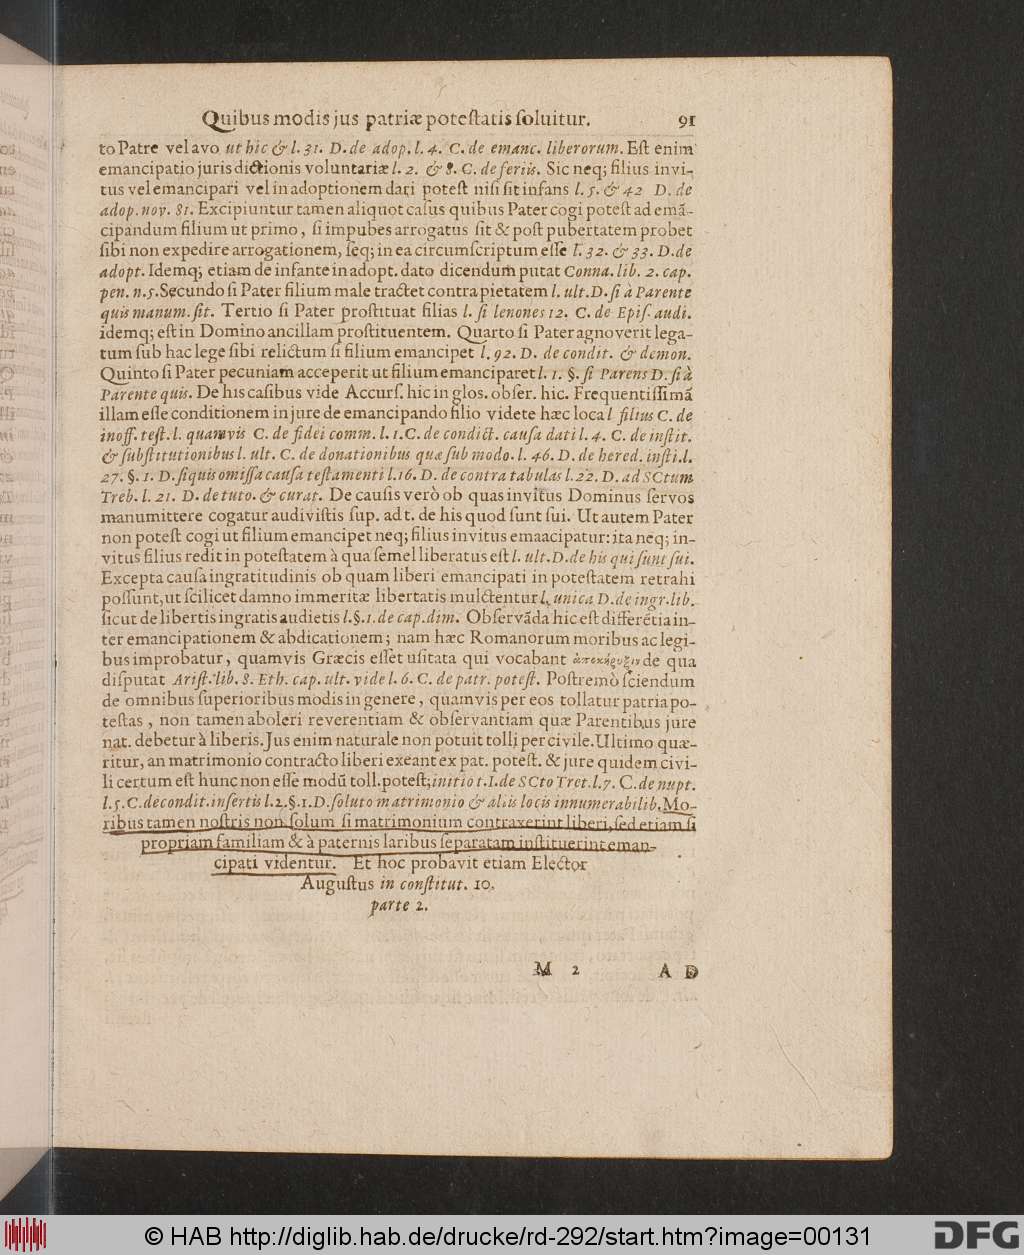 Quibus modis jus patriæ poteſtatis ſoluitur. 91
to Patre vel avo ut hic & l. 31. D. de adop. l. 4. C. de emanc. liberorum. Eſt enim
emancipatio jurisdictionis voluntariæ l. 2. & 8. C. de feriis. Sic neq; filius invi-
tus vel emancipari vel in adoptionem dari poteſt niſi ſit infans l. 5. & 42 D. de
adop. nov. 81. Excipiuntur tamen aliquot caſus quibus Pater cogi poteſt ad emã-
cipandum filium ut primo, ſi impubes arrogatus ſit & poſt pubertatem probet
ſibi non expedire arrogationem, ſeq; in ea circumſcriptum eſſe l. 32. & 33. D. de
adopt. Idemq; etiam de infante in adopt. dato dicendum putat Conna. lib. 2. cap.
pen. n. 5. Secundo ſi Pater filium male tractet contra pietatem l. ult. D. ſi à Parente
quis manum. ſit. Tertio ſi Pater proſtituat filias l. ſi lenones 12. C. de Epiſ. audi.
idemq; eſt in Domino ancillam proſtituentem. Quarto ſi Pater agnoverit lega-
tum ſub hac lege ſibi relictum ſi filium emancipet l. 92. D. de condit. & demon.
Quinto ſi Pater pecuniam acceperit ut filium emanciparet l. 1. §. ſi Parens D. ſi à
Parente quis. De his caſibus vide Accurſ. hic in glos. obſer. hic. Frequentiſſimã
illam eſſe conditionem in jure de emancipando filio videte hæc loca l filius C. de
inoff. teſt. l. quamvis C. de fidei comm. l. 1. C. de condict. cauſa dati l. 4. C. de inſtit.
& ſubſtitutionibus l. ult. C. de donationibus quæ ſub modo. l. 46. D. de hered. inſti. l.
27. §. 1. D. ſi quis omiſſa cauſa teſtamenti l. 16. D. de contra tabulas l. 22. D. ad SCtum
Treb. l. 21. D. de tuto. & curat. De cauſis verò ob quas invitus Dominus ſervos
manumittere cogatur audiviſtis ſup. ad t. de his quod ſunt ſui. Ut autem Pater
non poteſt cogi ut filium emancipet neq; filius invitus emaacipatur: ita neq; in-
vitus filius redit in poteſtatem à qua ſemel liberatus eſt l. ult. D. de his qui ſunt ſui.
Excepta cauſa ingratitudinis ob quam liberi emancipati in poteſtatem retrahi
poſſunt, ut ſcilicet damno immeritæ libertatis mulctentur l. unica D. de ingr. lib.
ſicut de libertis ingratis audietis l. §. 1. de cap. dim. Obſervãda hic eſt differẽtia in-
ter emancipationem & abdicationem; nam hæc Romanorum moribus ac legi-
bus improbatur, quamvis Græcis eſſet uſitata qui vocabant ἀποκήρυξιν de qua
diſputat Ariſt. lib. 8. Eth. cap. ult. vide l. 6. C. de patr. poteſt. Poſtremò ſciendum
de omnibus ſuperioribus modis in genere, quamvis per eos tollatur patria po-
teſtas, non tamen aboleri reverentiam & obſervantiam quæ Parentibus jure
nat. debetur à liberis. Jus enim naturale non potuit tolli per civile. Ultimo quæ-
ritur, an matrimonio contracto liberi exeant ex pat. poteſt. & jure quidem civi-
li certum eſt hunc non eſſe modũ toll. poteſt; initio t. I. de SCto Tret. l. 7. C. de nupt.
l. 5. C. de condit. inſertis l. 2. §. 1. D. ſoluto matrimonio & aliis locis innumerabilib. Mo-
ribus tamen noſtris non ſolum ſi matrimonium contraxerint liberi, ſed etiam ſi
propriam familiam & à paternis laribus ſeparatam inſtituerint eman-
cipati videntur. Et hoc probavit etiam Elector
Auguſtus in conſtitut. 10.
parte 2.
M 2 AD
© HAB http://diglib.hab.de/drucke/rd-292/start.htm?image=00131
DFG